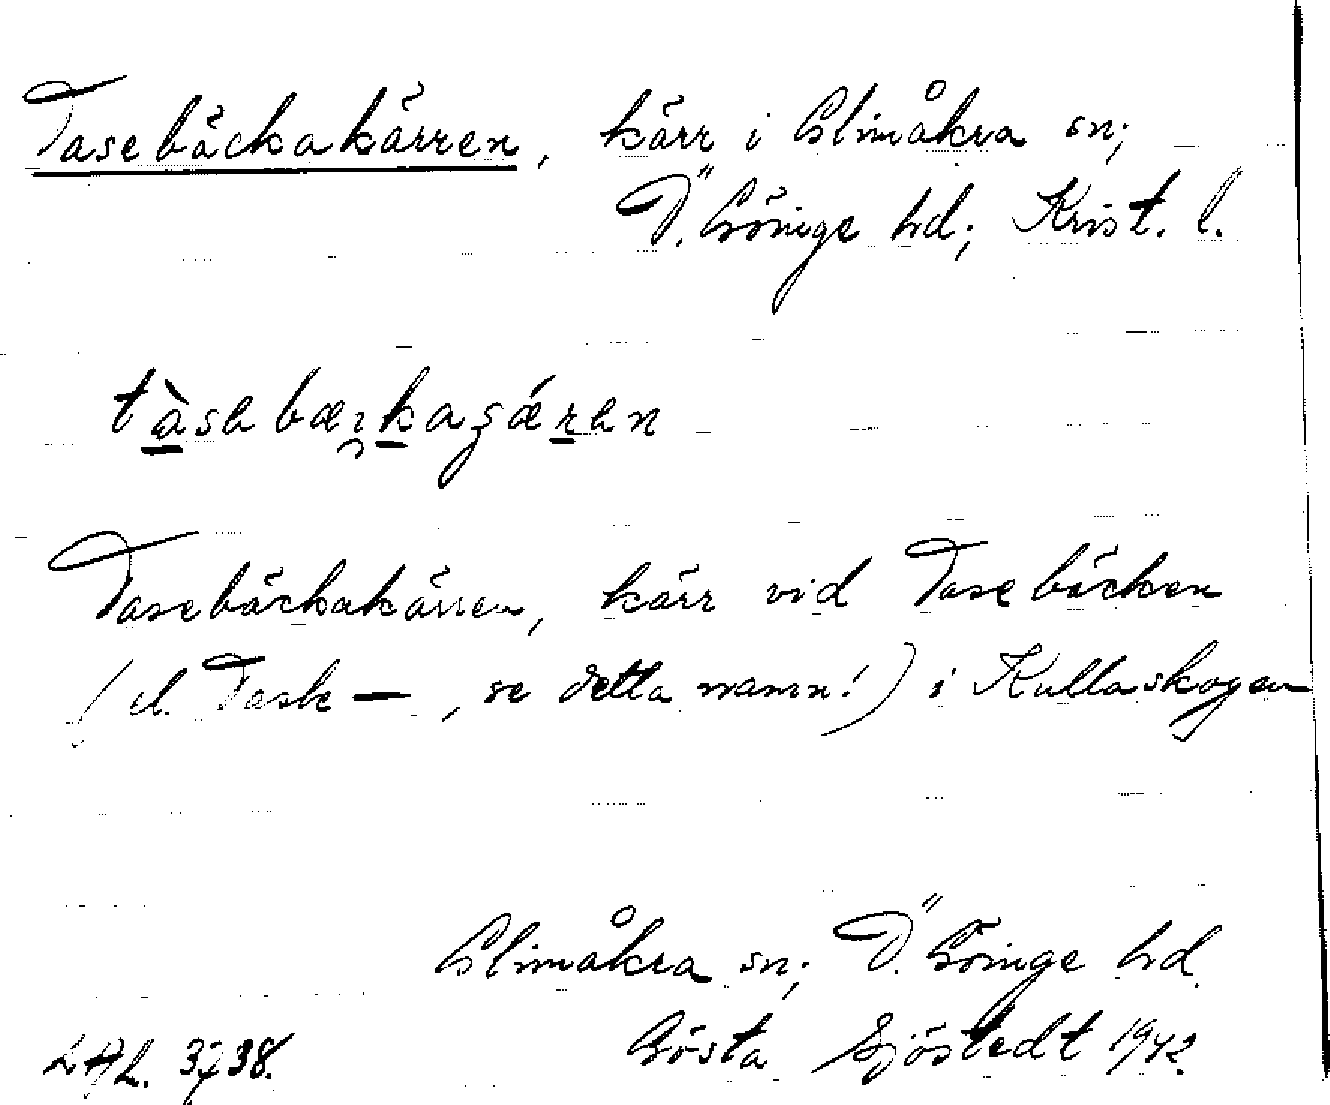 Tasebäckakärren, kärr i Glimåkra sn;
Ö. Göinge hd; Krist. l.
tàsebæckaʒǽren
Tasebäckakärren, kärr vid Tasebäcken
(el. Task—, se detta namn!) i Kullaskogen
Glimåkra sn; Ö. Göinge hd.
LAL. 3738. Gösta Sjöstedt 1942